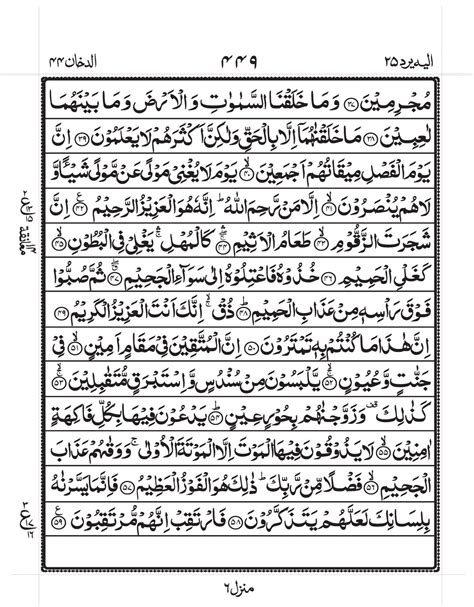 اليه يرد ٢٥ ٤٤٩ الدخان ٤٤
مُجْرِمِيْنَ ﴿٣٧﴾ وَمَا خَلَقْنَا السَّمٰوٰتِ وَالْاَرْضَ وَمَا بَيْنَهُمَا
لٰعِبِيْنَ ﴿٣٨﴾ مَا خَلَقْنٰهُمَاۤ اِلَّا بِالْحَقِّ وَلٰكِنَّ اَكْثَرَهُمْ لَا يَعْلَمُوْنَ ﴿٣٩﴾ اِنَّ
يَوْمَ الْفَصْلِ مِيْقَاتُهُمْ اَجْمَعِيْنَ ﴿٤٠﴾ يَوْمَ لَا يُغْنِيْ مَوْلًى عَنْ مَّوْلًى شَيْـًٔا وَّ
لَا هُمْ يُنْصَرُوْنَ ﴿٤١﴾ اِلَّا مَنْ رَّحِمَ اللّٰهُ ؕ اِنَّهٗ هُوَ الْعَزِيْزُ الرَّحِيْمُ ﴿٤٢﴾ اِنَّ
شَجَرَتَ الزَّقُّوْمِ ﴿٤٣﴾ طَعَامُ الْاَثِيْمِ ﴿٤٤﴾ كَالْمُهْلِ ۛۚ يَغْلِيْ فِي الْبُطُوْنِ ﴿٤٥﴾
كَغَلْيِ الْحَمِيْمِ ﴿٤٦﴾ خُذُوْهُ فَاعْتِلُوْهُ اِلٰى سَوَآءِ الْجَحِيْمِ ﴿٤٧﴾ ثُمَّ صُبُّوْا
فَوْقَ رَاْسِهٖ مِنْ عَذَابِ الْحَمِيْمِ ﴿٤٨﴾ ذُقْ ۙۚ اِنَّكَ اَنْتَ الْعَزِيْزُ الْكَرِيْمُ ﴿٤٩﴾
اِنَّ هٰذَا مَا كُنْتُمْ بِهٖ تَمْتَرُوْنَ ﴿٥٠﴾ اِنَّ الْمُتَّقِيْنَ فِيْ مَقَامٍ اَمِيْنٍ ﴿٥١﴾ فِيْ
جَنّٰتٍ وَّعُيُوْنٍ ﴿٥٢﴾ يَّلْبَسُوْنَ مِنْ سُنْدُسٍ وَّاِسْتَبْرَقٍ مُّتَقٰبِلِيْنَ ﴿٥٣﴾
كَذٰلِكَ ۟ وَزَوَّجْنٰهُمْ بِحُوْرٍ عِيْنٍ ﴿٥٤﴾ يَدْعُوْنَ فِيْهَا بِكُلِّ فَاكِهَةٍ
اٰمِنِيْنَ ﴿٥٥﴾ لَا يَذُوْقُوْنَ فِيْهَا الْمَوْتَ اِلَّا الْمَوْتَةَ الْاُوْلٰى ۚ وَوَقٰهُمْ عَذَابَ
الْجَحِيْمِ ﴿٥٦﴾ فَضْلًا مِّنْ رَّبِّكَ ؕ ذٰلِكَ هُوَ الْفَوْزُ الْعَظِيْمُ ﴿٥٧﴾ فَاِنَّمَا يَسَّرْنٰهُ
بِلِسَانِكَ لَعَلَّهُمْ يَتَذَكَّرُوْنَ ﴿٥٨﴾ فَارْتَقِبْ اِنَّهُمْ مُّرْتَقِبُوْنَ ﴿٥٩﴾
منزل ٦